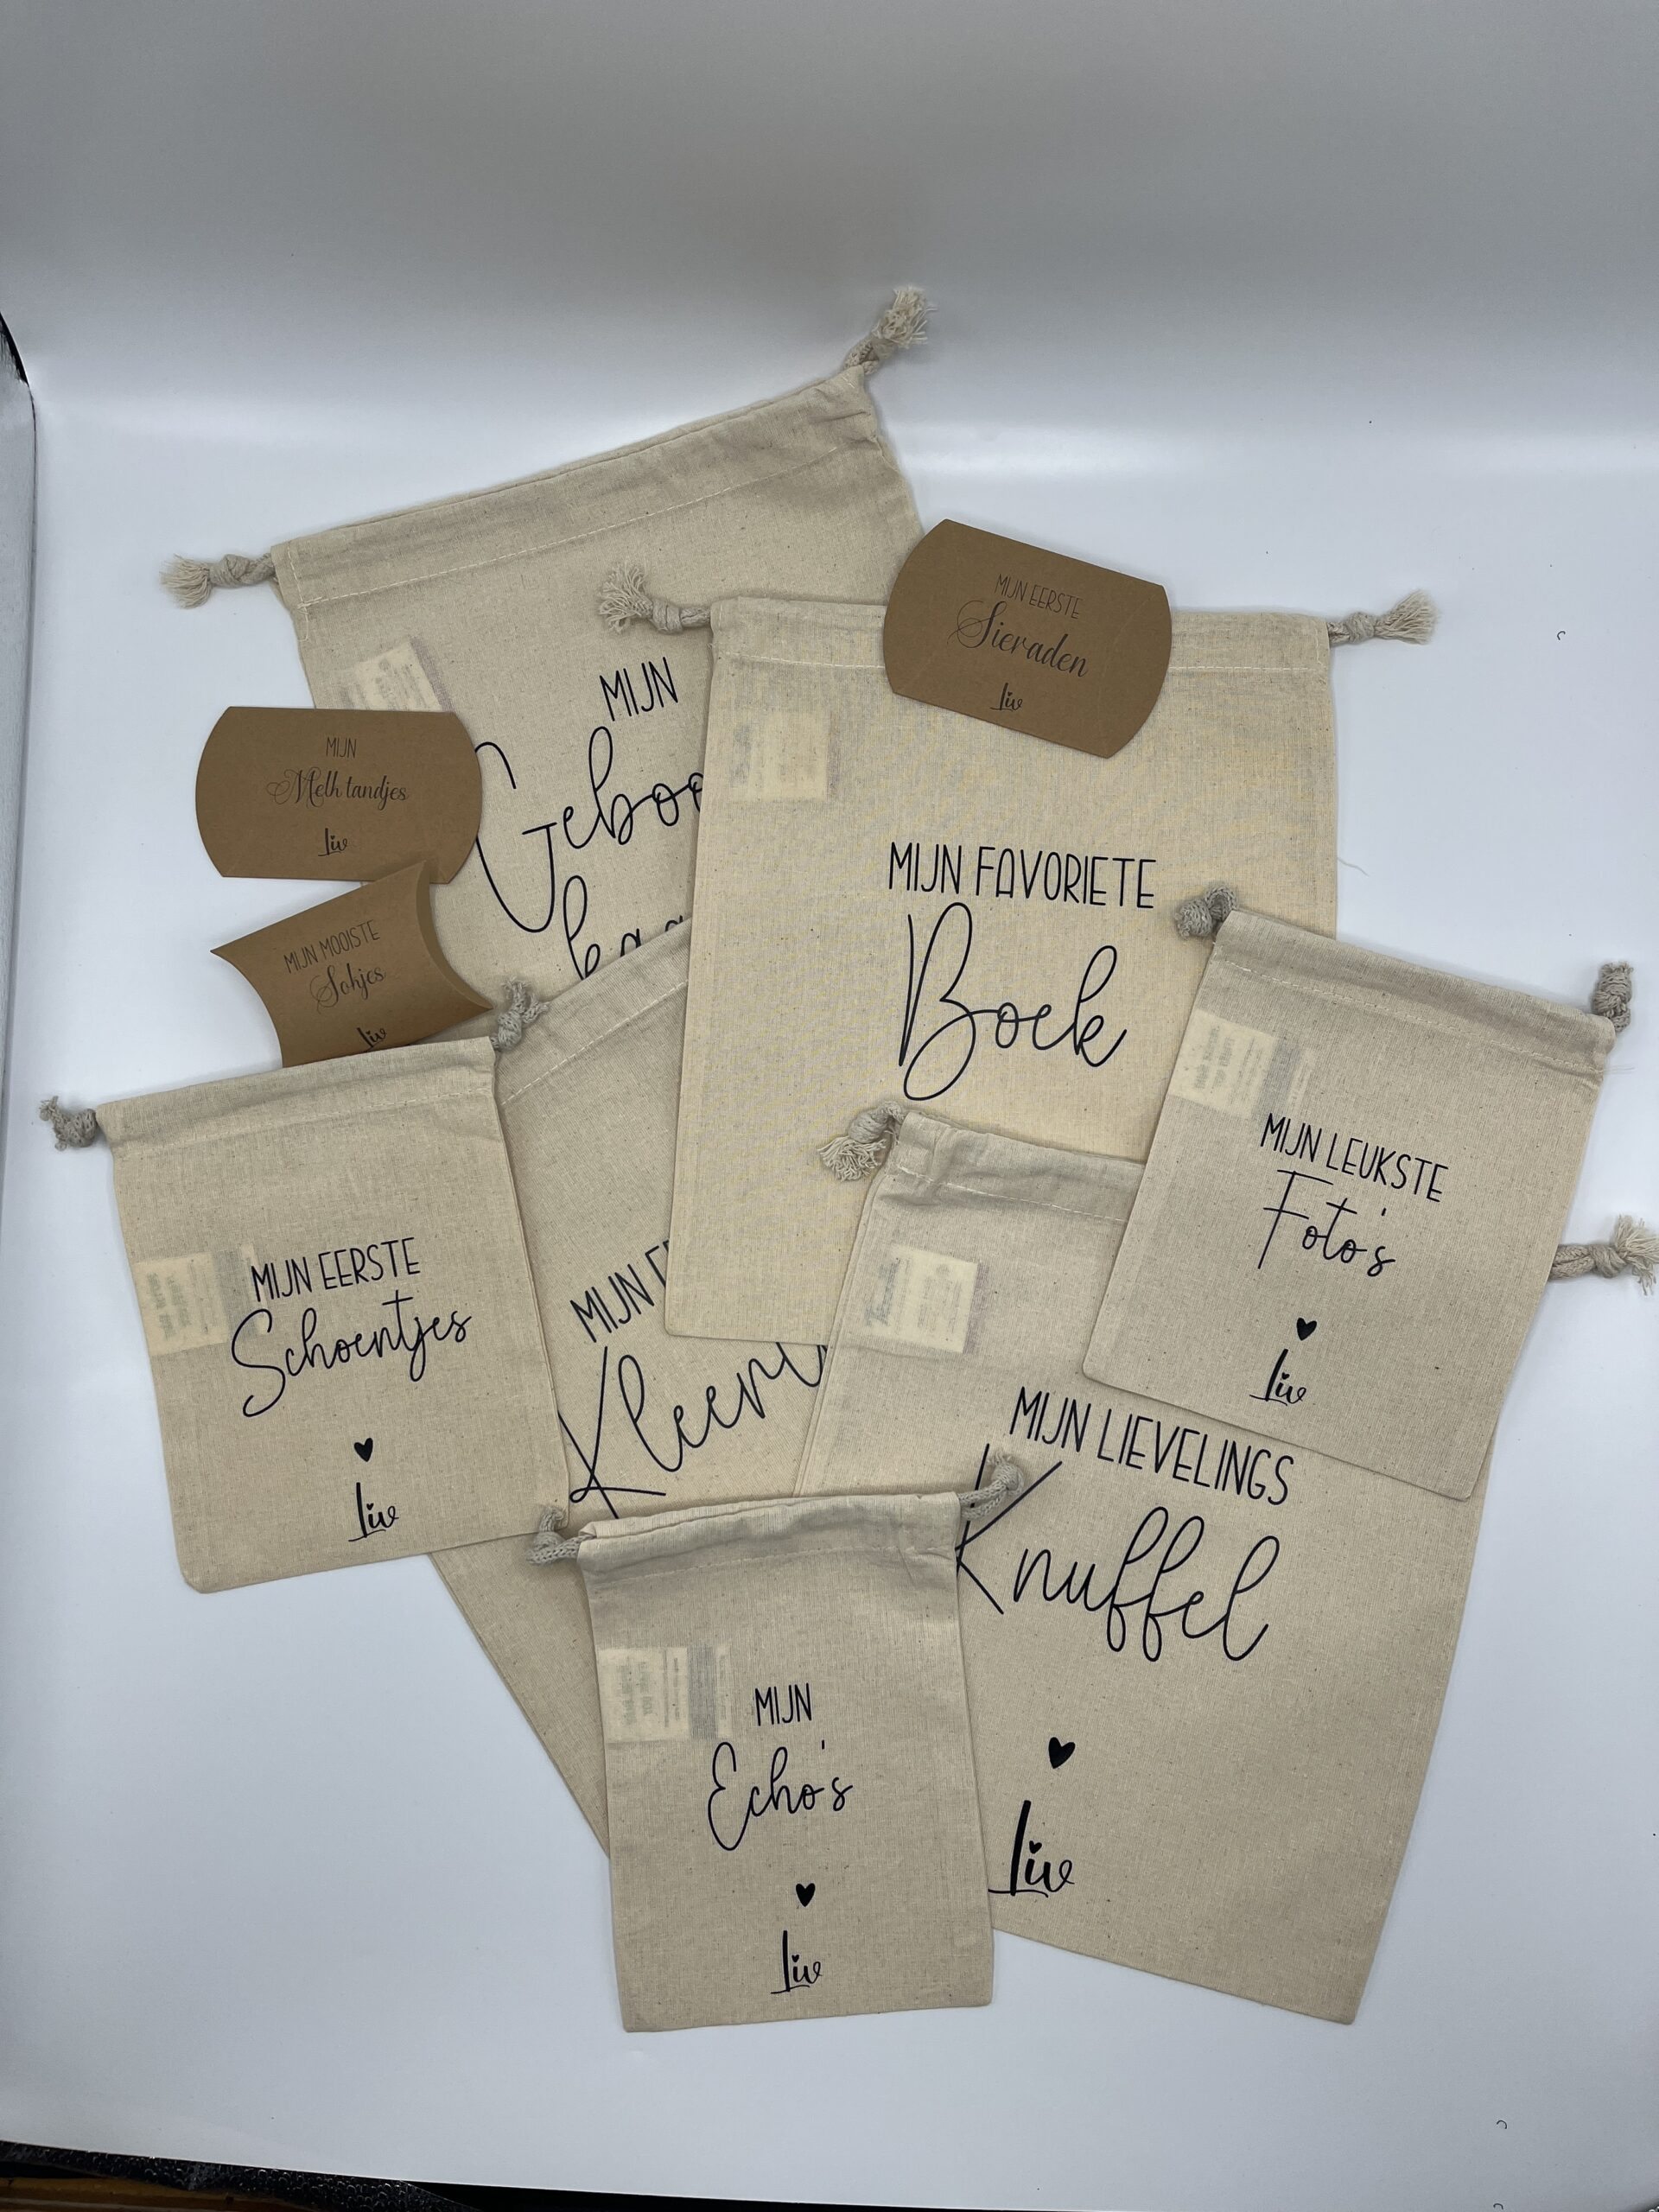 MIJN
Geboo
kaa
MIJN EERSTE
Sieraden
Liv
MIJN
Melktandjes
Liv
MIJN MOOISTE
Sokjes
Liv
MIJN FAVORIETE
Boek
MIJN LEUKSTE
Foto's
Liv
MIJN EERSTE
Schoentjes
Liv
MIJN E
Kleer
MIJN LIEVELINGS
Knuffel
Liv
MIJN
Echo's
Liv